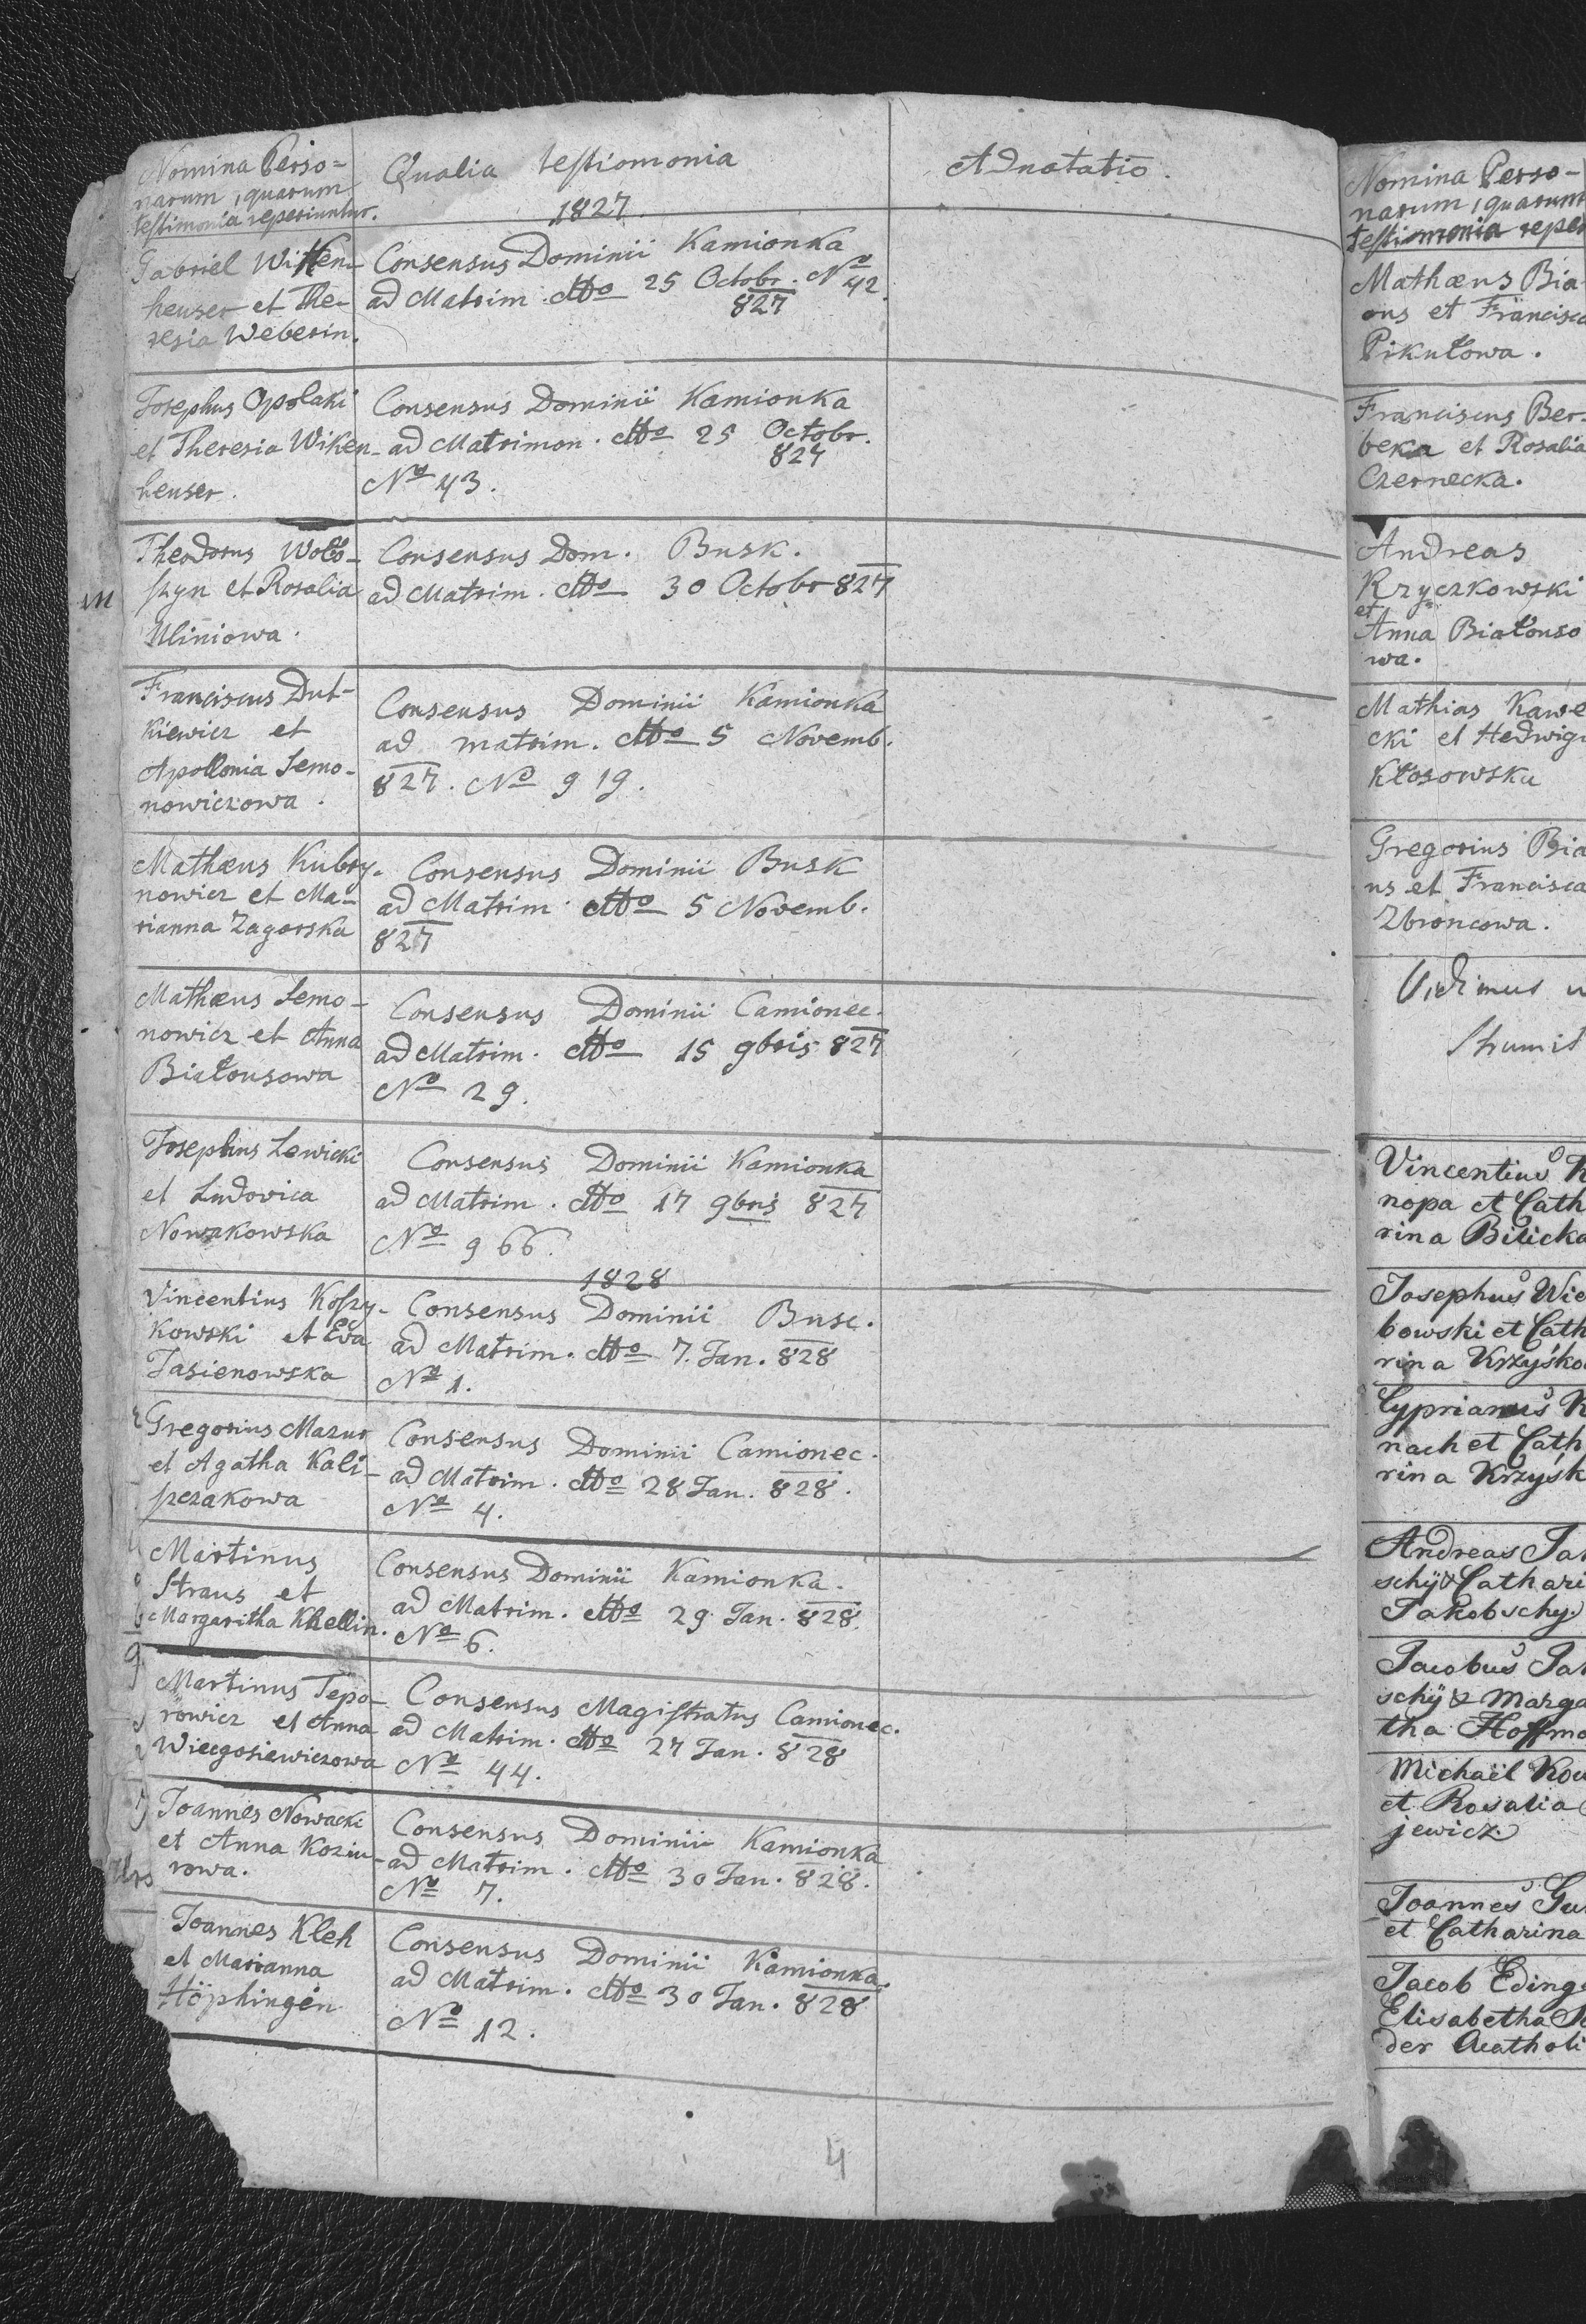 Nomina Perso=
narum, quarum
testimonia reperiuntur.
Qualia testiomonia
1827.
Adnotatio.
Gabriel Witten-
heuser et The-
resia Weberin.
Consensus Dominii Kamionka
ad Matrim. ddto 25 Octobr. No 42.
827
Josephus Opolski
et Theresia Wiken-
heuser.
Consensus Dominii Kamionka
ad Matrimon. ddto 25 Octobr.
827
No 43.
Theodorus Woło-
szyn et Rosalia
Uliniowa.
Consensus Dom. Busk.
ad Matrim. ddto 30 Octobr 827
Franciscus Dut-
kiewicz et
Apollonia Semo-
nowiczowa.
Consensus Dominii Kamionka
ad matrim. ddto 5 Novemb.
827. No 919.
Mathæus Kubry-
nowicz et Ma-
rianna Zagorska
Consensus Dominii Busk
ad Matrim. ddto 5 Novemb.
827
Mathæus Semo-
nowicz et Anna
Białousowa
Consensus Dominii Camionec.
ad Matrim. ddto 15 9bris 827
No 29.
Josephus Lewicki
et Ludovica
Nowakowska
Consensus Dominii Kamionka
ad Matrim. ddto 17 9bris 827
No 966.
1828
Vincentius Koszy-
kowski et Eva
Jasienowska
Consensus Dominii Busc.
ad Matrim. ddto 7. Jan. 828
No 1.
Gregorius Mazur
et Agatha Kali-
szczakowa
Consensus Dominii Camionec.
ad Matrim. ddto 28 Jan. 828.
No 4.
Martinus
Straus et
Margaritha Khellin.
Consensus Dominii Kamionka.
ad Matrim. ddto 29 Jan. 828.
No 6.
Martinus Tepo-
rowicz et Anna
Wiecgosiewiczowa
Consensus Magistratus Camionec.
ad Matrim. ddto 27 Jan. 828
No 44.
Joannes Nowacki
et Anna Koziu-
rowa.
Consensus Dominii Kamionka
ad Matrim. ddto 30 Jan. 828.
No 7.
Joannes Kleh
et Marianna
Höphingen
Consensus Dominii Kamionka.
ad Matrim. ddto 30 Jan. 828
No 12.
4
Nomina Perso-
narum, quarum
testimonia reper
Mathæus Bia-
ous et Francisca
Pikułowa.
Franciscus Ber-
beka et Rosalia
Czernecka.
Andreas
Krzyczkowski
et
Anna Białouso
wa.
Mathias Kawe
cki et Hedwigi
Kłosowska
Gregorius Bia
us et Francisca
Zbroncowa.
Vidimus
Vincentius K
nopa et Cath
rina Bilicka
Josephus Wie
bowski et Cath
rina Krzyśko
Cyprianus K
nach et Cath
rina Krzyśk
Andreas Jak
schÿ & Cathari
Jakobschy
Jacobus Jak
schÿ & Marga
tha Hoffma
Michaël Kou
et Rosalia
jewicz
Joannes Gu
et Catharina
Jacob Eding
Elisabetha
der Acatholi